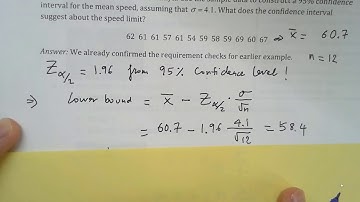 interval for the mean speed, assuming that σ = 4.1. What does the confidence interval
suggest about the speed limit?
62 61 61 57 61 54 59 58 59 69 60 67 ⇒ x̄ = 60.7
Answer: We already confirmed the requirement checks for earlier example. n = 12
Z α/2 = 1.96 from 95% Confidence level !
⇒ Lower bound = x̄ − Z α/2 · σ/√n
= 60.7 − 1.96 4.1/√12 = 58.4